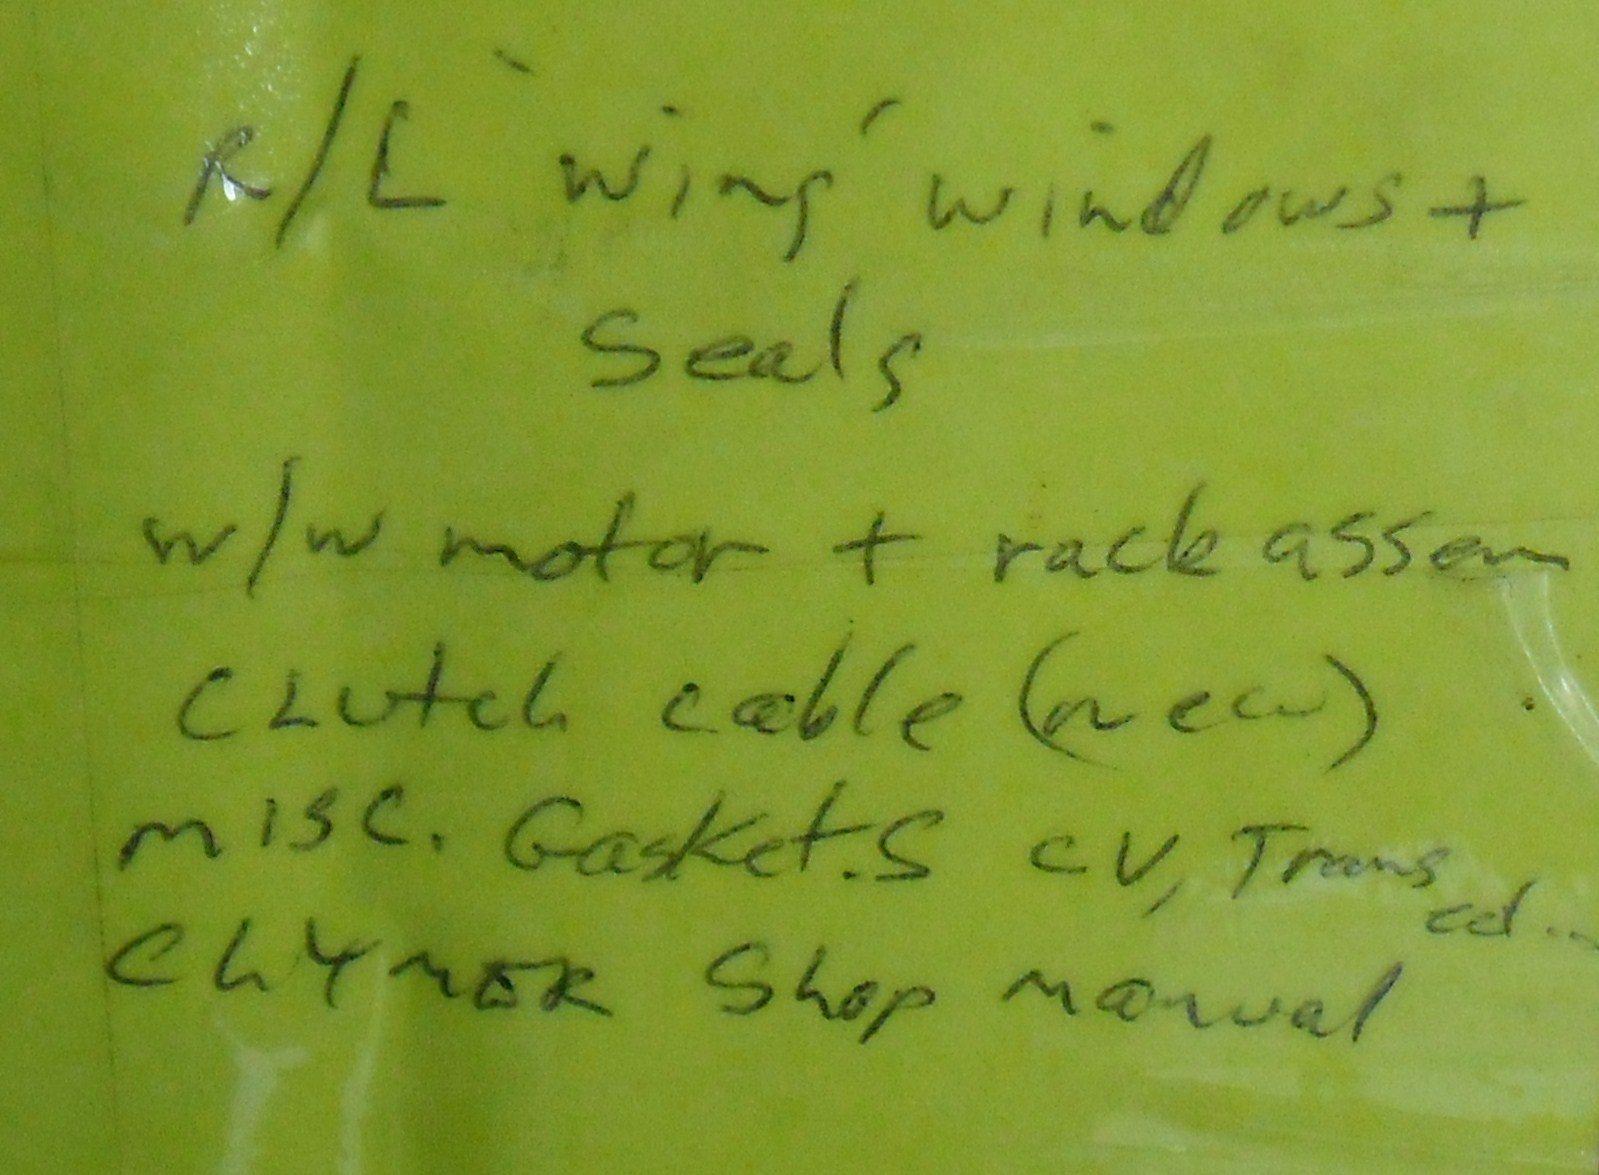 R/L 'wing' windows +
Seals
w/w motor + rack assem
Clutch cable (new)
misc. Gasket.s CV, Trans
Chymer Shop manual